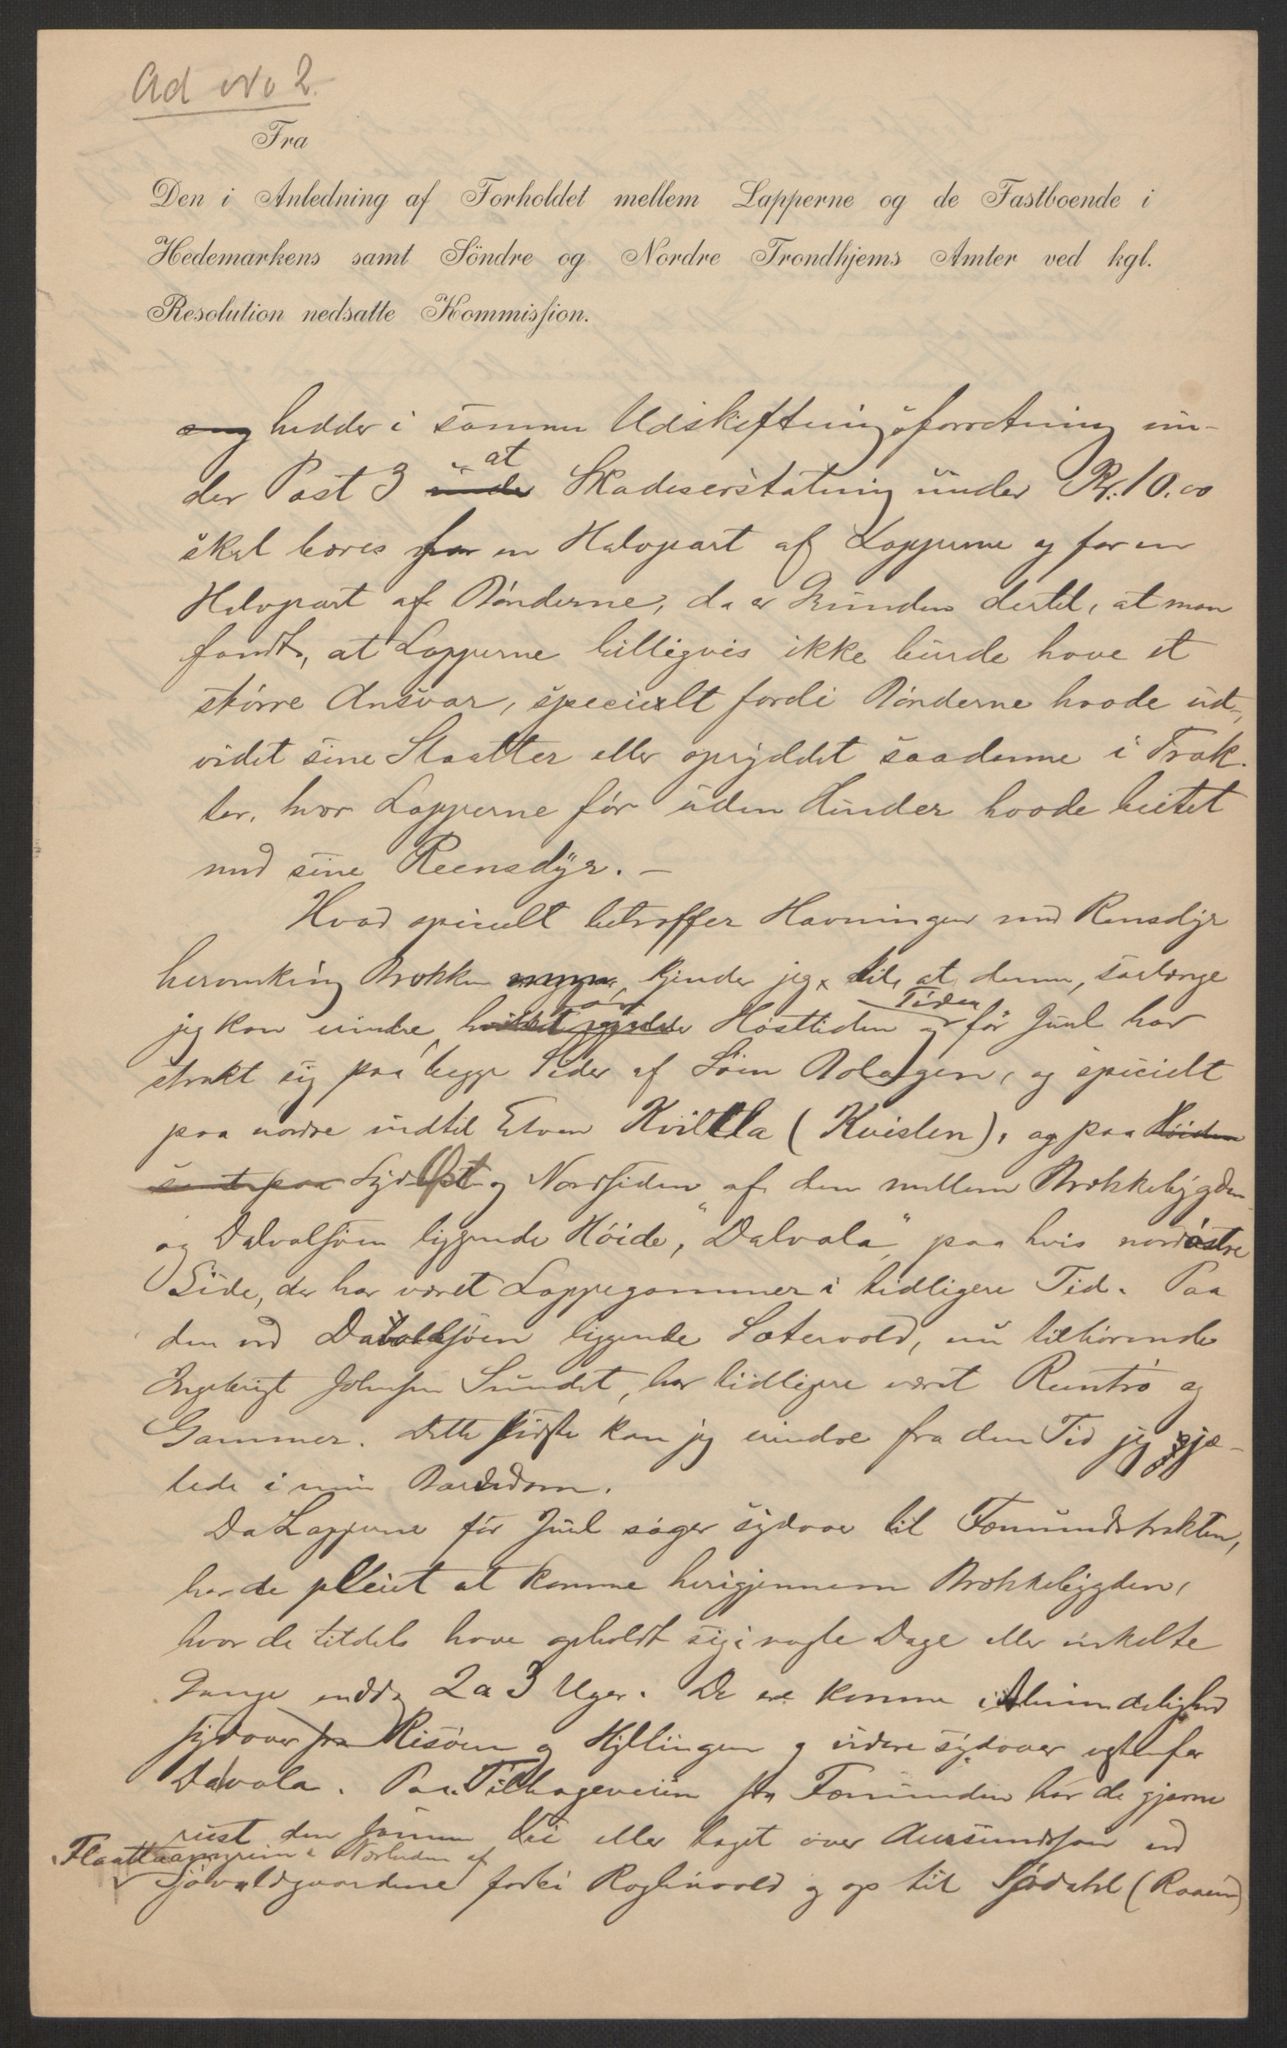 Ad No 2.
Fra
Den i Anledning af Forholdet mellem Lapperne og de Fastboende i
Hedemarkens samt Söndre og Nordre Trondhjems Amter ved kgl.
Resolution nedsatte Kommission.
hedder i samme Udskiftningsforretning un-
der Post 3 at Skadeserstatning under Kr. 10.00
skal bæres for en Halvpart af Lapperne og for en
Halvpart af Bønderne, da er Grunden dertil, at man
fandt, at Lapperne billigvis ikke burde have et
større Ansvar, specielt fordi Bønderne havde ud-
videt sine Slaatter eller opryddet saadanne i Trak-
ter, hvor Lapperne før uden Hinder havde beitet
med sine Reensdyr. –
Hvad specielt betræffer Havningen med Rensdyr
heromkring Brekken kjender jeg til, at denne, saalænge
jeg kan mindre, Høsttiden og Tiden før Juul har
strakt sig paa begge Sider af Søen Bolagen, og specielt
paa nordre indtil Elven Kvilla (Kvislen), og paa
Syd Øst og Nordsiden af den mellem Brekkebygden
og Dalvolsjøen liggende Høide, "Dalvola", paa hvis nordøstre
Side, der har været Lappegammer i tidligere Tid. Paa
den ved Dalvolsjøen liggende Sætervold, nu tilhørende
Ingebrigt Johnsen Sundet, har tidligere været Rentrø og
Gammer. Dette sidste kan jeg mindre fra den Tid jeg gjæ-
tede i min Barndom.
Da Lapperne før Juul søger sydover til Fæmundstrakten,
har de pleiet at komme herigjennem Brekkebygden,
hvor de tildels have opholdt sig i nogle Dage eller enkelte
Gange endda 2 a 3 Uger. De komme i Almindelighed
sydover fra Risøen og Hyllingen og videre sydover østenfor
Dalvola. Paa Tilbageveien fra Fæmunden har de gjerne
reist den samme Vei eller taget over Aursundsjøen ved
Flaattaamyren a Nordenden af
Sjøvoldgaardene forbi Roglivold og op til Sjødahl (Raaen)